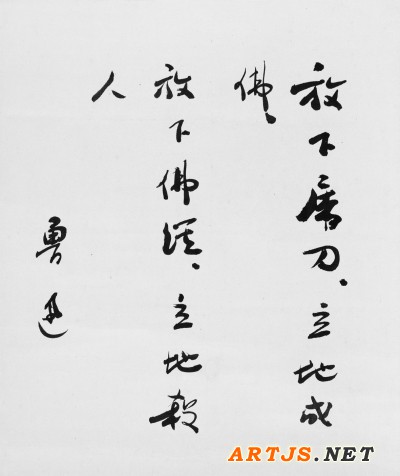 放下屠刀、立地成
佛、
放下佛經、立地殺
人
魯迅
ARTJS.NET